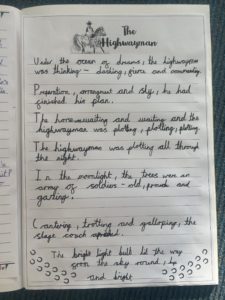 The
Highwayman
Under the ocean of dreams, the highwayman
was thinking - dashing, fierce and
and sly, he had
finished his plan.
The horse waiting and waiting and the
highwayman was plotting, plotting, plotting.
The highwayman was plotting all through
the night.
In the moonlight, the trees were an
army of soldiers - old, proud and
Cantering, trotting and galloping, the
stage coach
The bright light built the way
the sky round,
and bright